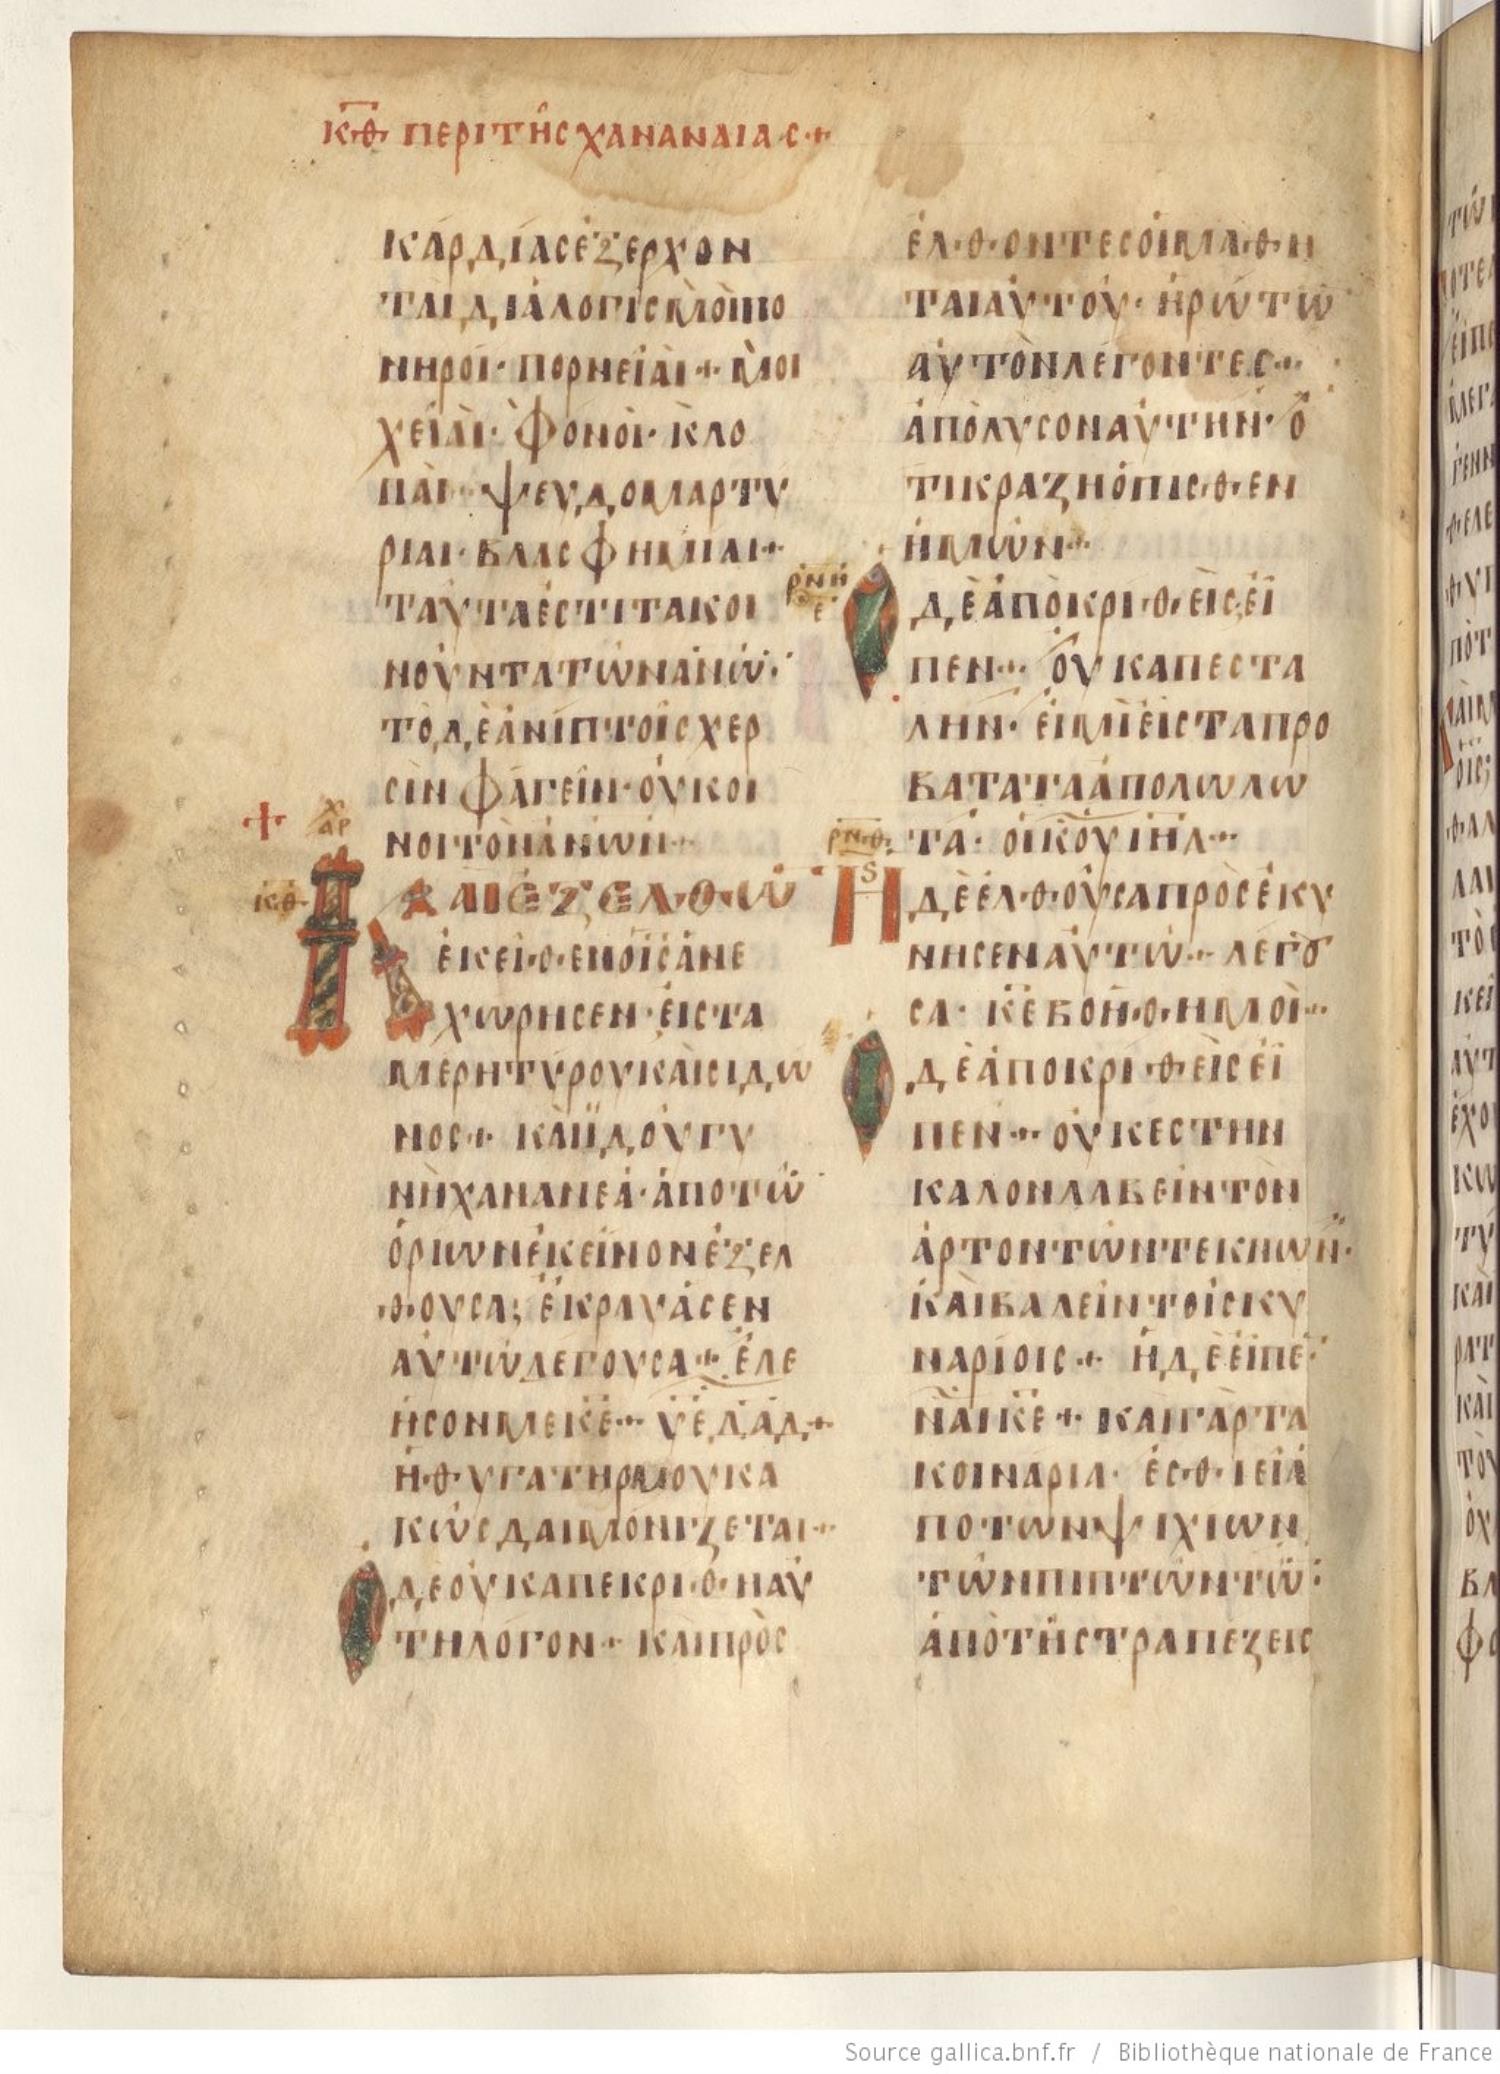 κθ περιτῆς χαναναιας
καρδίας ἐξερχον
ται διαλογισμοὶ πο
νηροί· πορνεῖαι· μοι
χεῖαι· φόνοι· κλο
παι· ψευδομαρτυ
ριαι· βλασφημιαι·
ταυτα ἐστι τα κοι
νοῦντα τὼν ἀνὼν·
τὸ δὲ ἀνίπτοις χερ
σὶν φαγεῖν· οὐ κοι
νοι τὸν ἀνων
χ
αρ
κθ
Και ἐξελθὼ
ἐκειθεν ὁ ις ἀνε
χωρησεν· εἰς τα
μερη τύρου καὶ σιδω
νος· καὶ ϊδοὺ γυ
νὴ χανανεά· ἀπο τὼ
ὁριων ἐκεῖνον ἐξελ
θουσα· ἐκραυάσεν
αὐτὼ λεγουσα· ἐλε
ησον με κε· υε δαδ
ἡ θυγατηρ μου κα
κὼς δαιμονιζεται·
Ο δε οὐκ απεκριθη αὐ
τη λόγον· και πρὸσ
ἐλθοντες οἱ μαθη
ται αὐτοῦ· ἠρώτω
αὐτὸν λέγοντες·
ἀπόλυσον αὐτὴν· ὅ
τι κραζη ὄπισθεν
ἡμὼν
ρνη
ε
Ο δὲ ἀποκριθεὶς εἶ
πεν· οὐκ απεστα
λην· εἰ μὶ εἰς τα προ
βατα τα ἀπολωλω
τά· οἰκου ιηλ
ρνθ
ς
Η δὲ ἐλθοῦσα προσεκυ
νησεν αὐτὼ· λεγου
σα· κε βοηθη μοὶ·
Ο δὲ ἀποκριθεὶς εἶ
πεν· οὐκ εστην
καλον λαβεῖν τὸν
ἄρτον τὼν τεκνων·
καὶ βαλεῖν τοῖς κυ
ναρίοις· ἡ δὲ εἶπε
ναι κε· και γὰρ τα
κοιναρια· ἐσθιει ἀ
πο των ψιχιων
τὼν πιπτώντων
ἀπὸ τῆς τραπεζεις
Source gallica.bnf.fr / Bibliothèque nationale de France